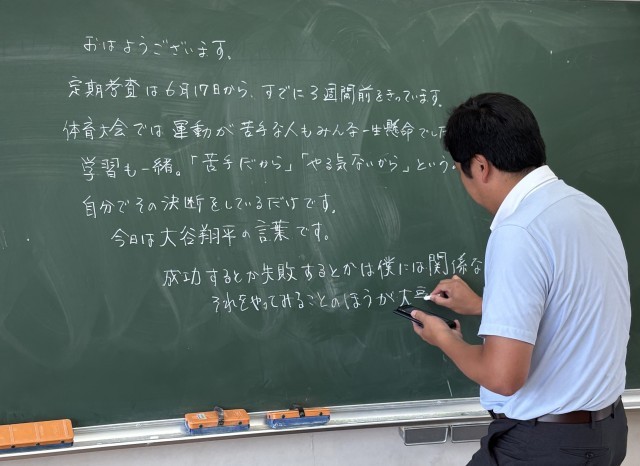 おはようございます。
定期考査は6月17日から、すでに3週間前をきっています。
体育大会では運動が苦手な人もみんな一生懸命でした
学習も一緒。「苦手だから」「やる気ないから」という。
自分でその決断をしているだけです。
今日は大谷翔平の言葉です。
成功するとか失敗するとかは僕には関係な
それをやってみることのほうが大